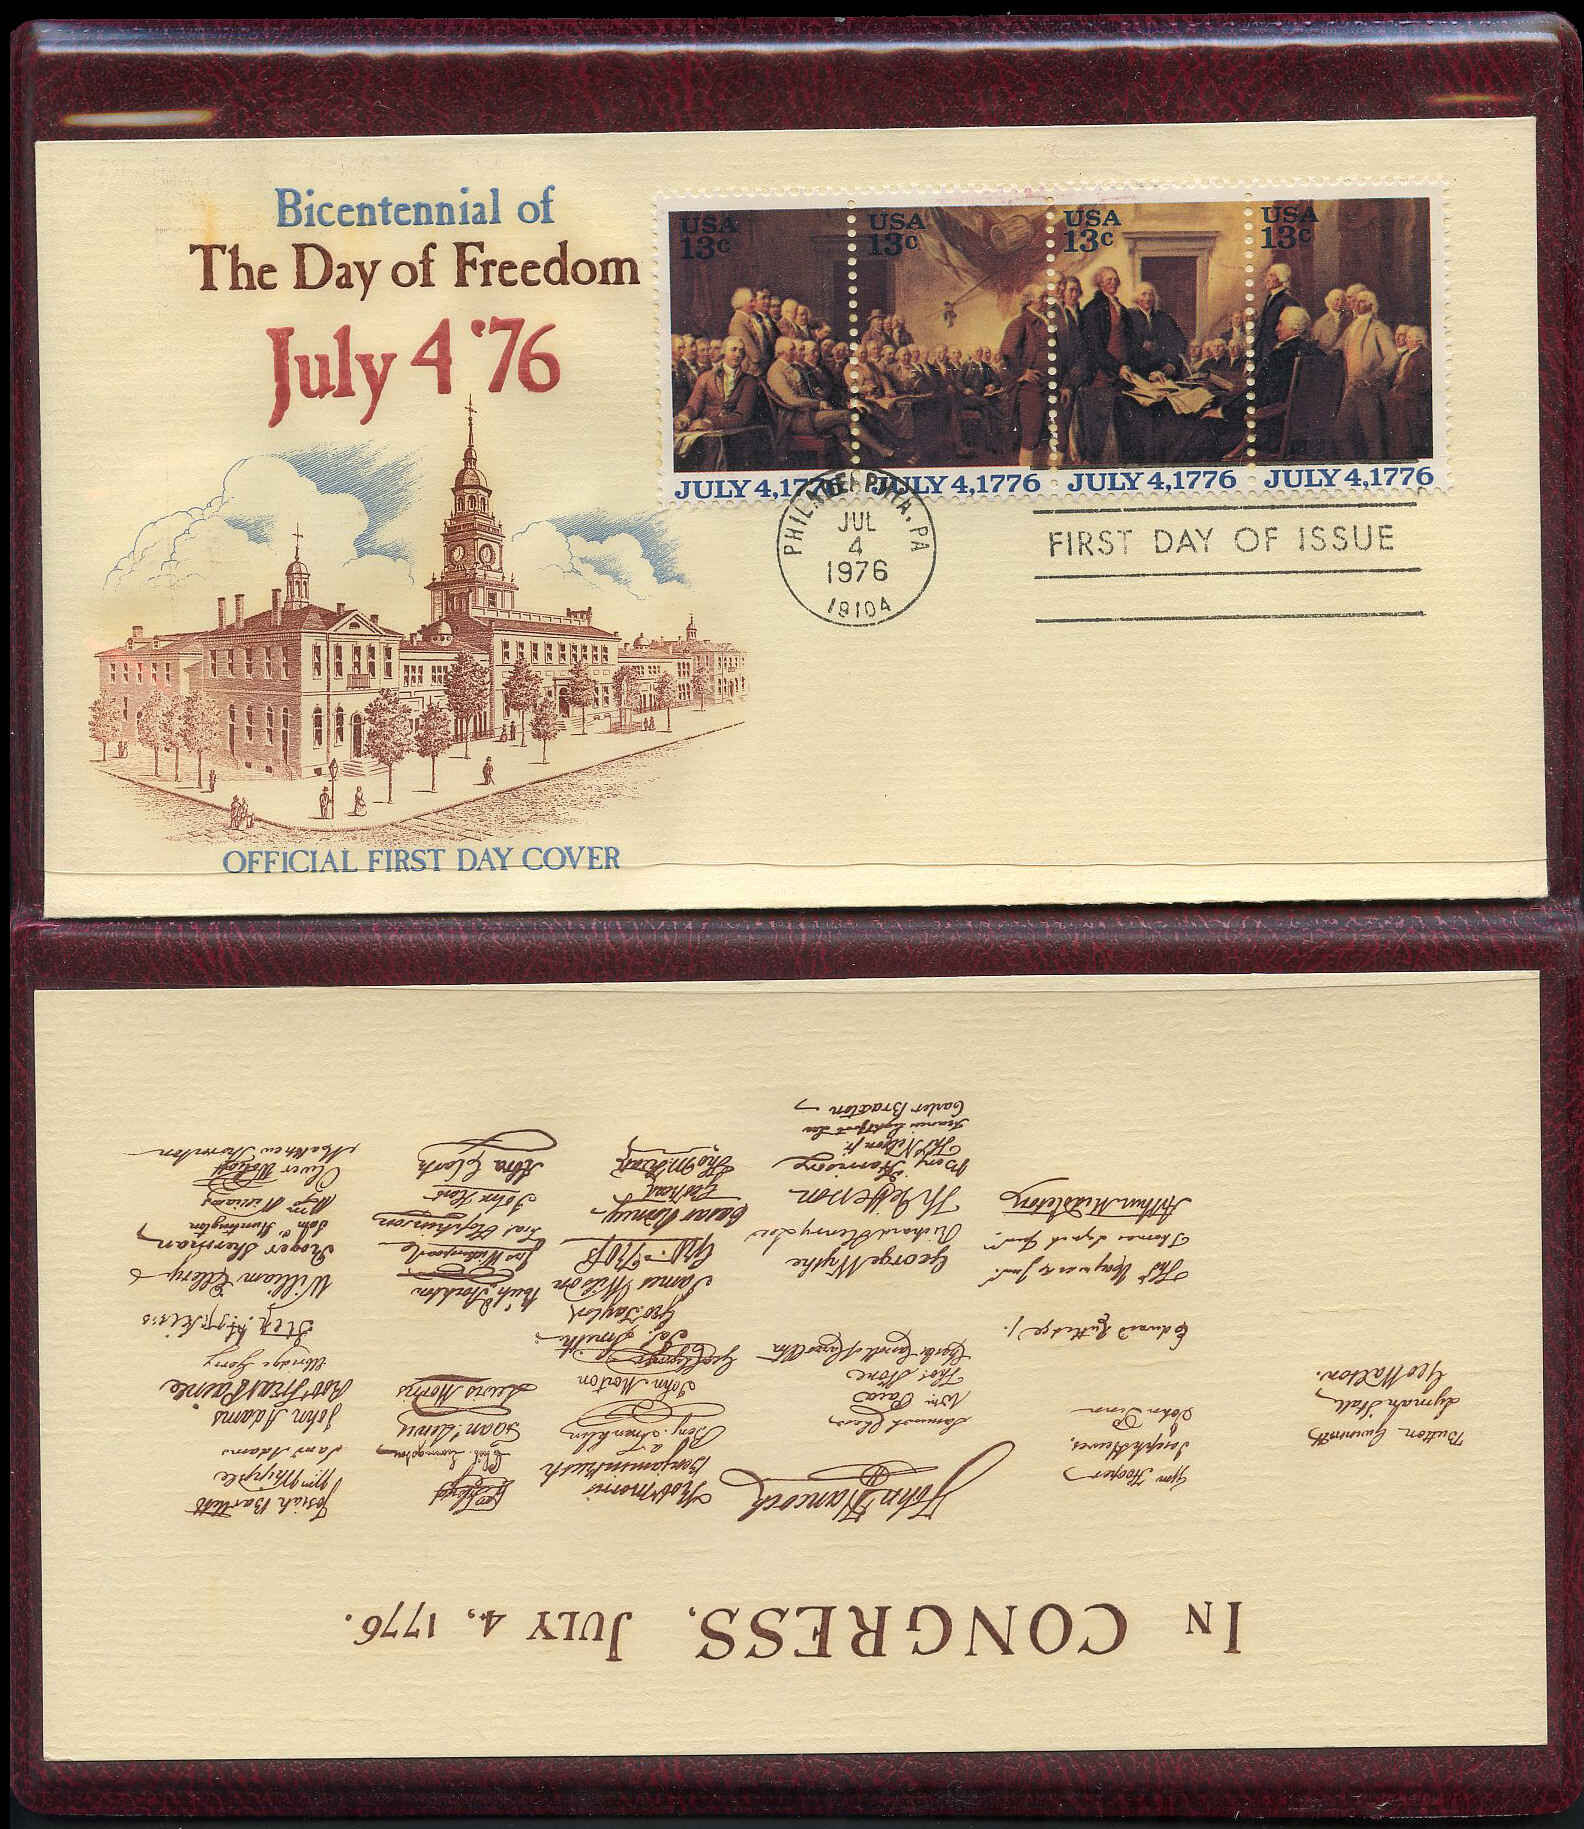 Bicentennial of
The Day of Freedom
July 4 '76
OFFICIAL FIRST DAY COVER
USA
13c
USA
13c
USA
13c
USA
13c
JULY 4,1776
JULY 4,1776
JULY 4,1776
JULY 4,1776
PHILADELPHIA, PA
JUL
4
1976
19104
FIRST DAY OF ISSUE
IN CONGRESS, JULY 4, 1776.
Button Gwinnett
Lyman Hall
Geo Walton.
Wm Hooper
Joseph Hewes,
John Penn
Edward Rutledge /.
Thos Heyward Junr.
Thomas Lynch Junr.
Arthur Middleton
John Hancock
Samuel Chase
Wm. Paca
Thos. Stone
Charles Carroll of Carrollton
George Wythe
Richard Henry Lee
Th Jefferson
Benj Harrison
Thos Nelson jr.
Francis Lightfoot Lee
Carter Braxton
Robt Morris
Benjamin Rush
Benj. Franklin
John Morton
Geo Clymer
Jas. Smith
Geo. Taylor
James Wilson
Geo. Ross
Caesar Rodney
Geo Read
Tho M:Kean
Wm Floyd
Phil. Livingston
Frans. Lewis
Lewis Morris
Richd. Stockton
Jno Witherspoon
Fras. Hopkinson
John Hart
Abra Clark
Josiah Bartlett
Wm: Whipple
Saml Adams
John Adams
Robt Treat Paine
Elbridge Gerry
Step. Hopkins
William Ellery
Roger Sherman
Saml Huntington
Wm Williams
Oliver Wolcott
Matthew Thornton